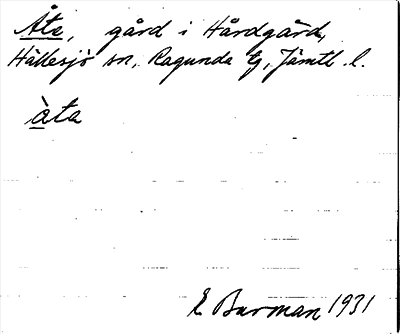 Åte, gård i Hårdgård,
Hällesjö sn, Ragunda tg, Jämtl. l.
åta
E Burman 1931